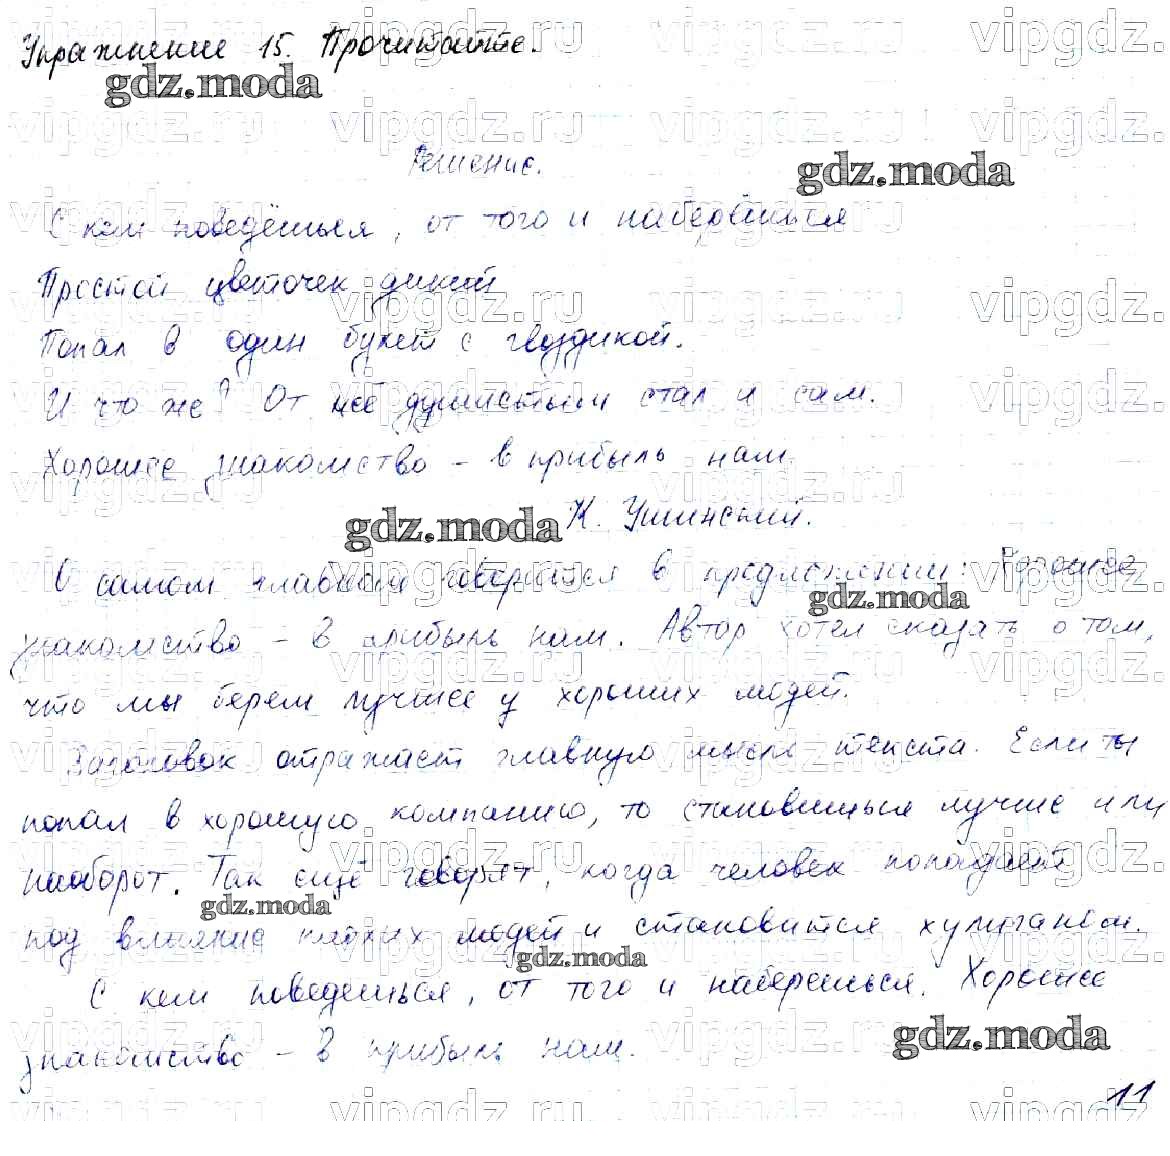 Упражнение 15. Прочитайте.
Решение.
С кем поведёшься, от того и наберёшься
Простой цветочек дикий
Попал в один букет с гвоздикой.
И что же? От неё душистым стал и сам.
Хорошее знакомство – в прибыль нам.
К. Ушинский.
О самом главном говорится в предложении: Хорошее
знакомство – в прибыль нам. Автор хотел сказать о том,
что мы берем лучшее у хороших людей.
Заголовок отражает главную мысль текста. Если ты
попал в хорошую компанию, то становишься лучше или
наоборот. Так ещё говорят, когда человек попадает
под влияние плохих людей и становится хулиганом.
С кем поведешься, от того и наберешься. Хорошее
знакомство – в прибыль нам.
11
gdz.moda
vipgdz.ru